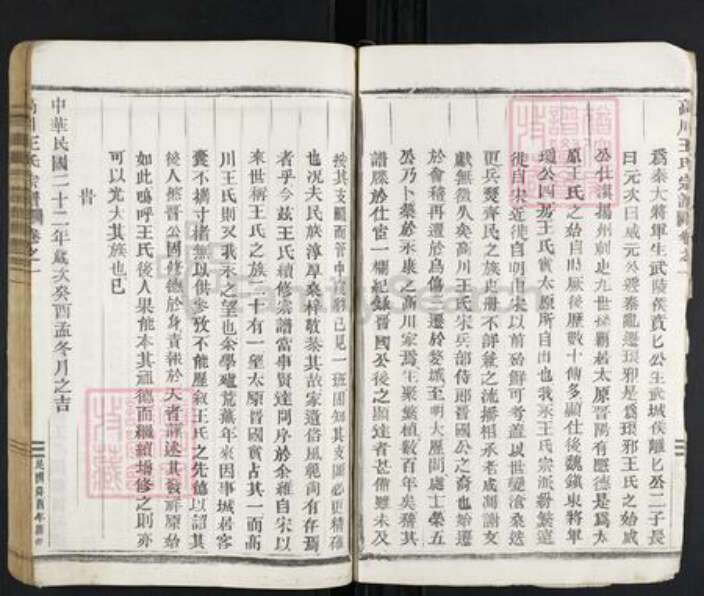 高川王氏宗譜 卷之一
為秦大將軍生武陵侯賁匕公生武城侯離匕公二子長
曰元次曰威元公避秦亂遷瑯琊是爲瑯琊王氏之始威
公仕漢揚州刺史九世孫霸居太原晉陽有懸德是爲太
原王氏之始自時厥後歷數十傳多顯仕後魏鎮東將軍
瓊公四房王氏實太原所自出也我宋王氏宗派紛繁遷
徙自宋近徙自明由宋以前殆鮮可考蓋以世變滄桑迭
更兵燹齊民之族史冊不詳
獻無徵久矣高川王氏宋兵部侍郎晉國公之裔也始遷
於會稽再遷於烏傷
公乃卜築於永康之高川家焉生聚繁植數百年矣稽其
譜牒於仕宦一欄紀錄晉國公後之顯達者甚備雖未及
按其支顯而管中窺豹已見一班固知其支圖必更精確
也况夫民族淳厚桑梓敬恭其故家遺俗風範尚有存焉
者乎今茲王氏續修宗譜當事賢達問序於余維自宋以
來世稱王氏之族二十有一望太原晉國實占其一而高
川王氏則又我永之望也余學殖荒蕪年來因事城居客
囊不攜寸楮無以供參攷不能歷叙王氏之先德以詔其
後人然晉公固修德於身責報於天者謹述其發祥原始
如此嗚呼王氏後人果能本其祖德而繼續增修之則亦
可以光大其族也已
旹
中華民國二十二年歲次癸酉孟冬月之吉
高川王氏宗譜 卷之一
FamilySearch